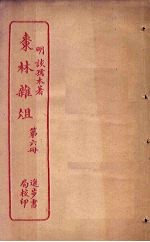 明 談孺木著
棗林雜俎
第六冊
進步書
局校印